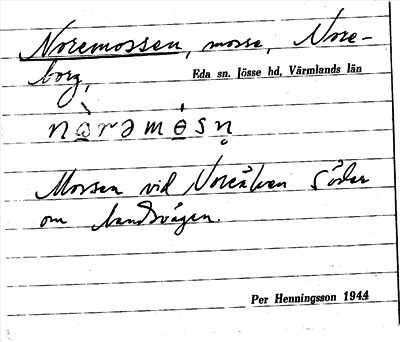 Noremossen, mosse, Nore-
borg,
Eda sn. Jösse hd, Värmlands län
nòrəmósn̥
Mossen vid Noreälven söder
om landsvägen.
Per Henningsson 1944